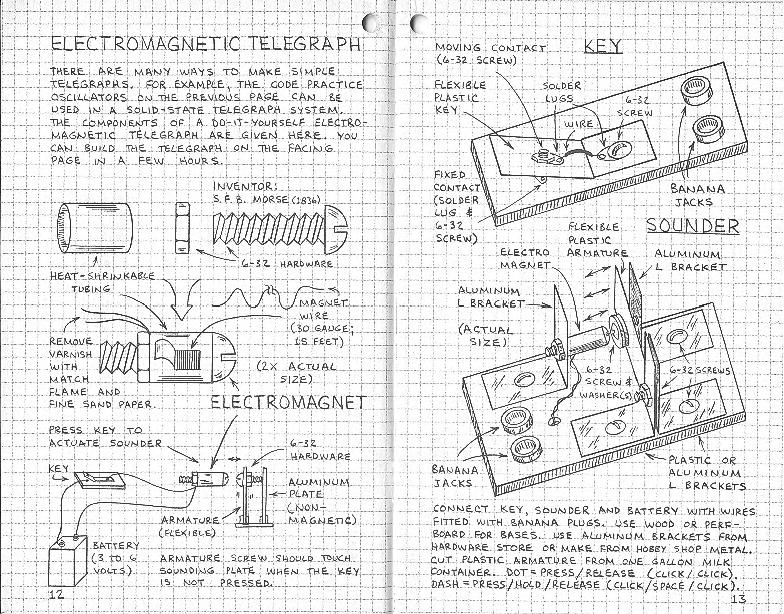 ELECTROMAGNETIC TELEGRAPH
THERE ARE MANY WAYS TO MAKE SIMPLE
TELEGRAPHS. FOR EXAMPLE, THE CODE PRACTICE
OSCILLATORS ON THE PREVIOUS PAGE CAN BE
USED IN A SOLID-STATE TELEGRAPH SYSTEM.
THE COMPONENTS OF A DO-IT-YOURSELF ELECTRO-
MAGNETIC TELEGRAPH ARE GIVEN HERE. YOU
CAN BUILD THE TELEGRAPH ON THE FACING
PAGE IN A FEW HOURS.
INVENTOR:
S.F.B. MORSE (1836)
6-32 HARDWARE
HEAT-SHRINKABLE
TUBING
MAGNET
WIRE
(30 GAUGE;
15 FEET)
REMOVE
VARNISH
WITH
MATCH
FLAME AND
FINE SAND PAPER.
(2X ACTUAL
SIZE)
ELECTROMAGNET
PRESS KEY TO
ACTUATE SOUNDER
6-32
HARDWARE
KEY
ALUMINUM
PLATE
(NON-
MAGNETIC)
ARMATURE
(FLEXIBLE)
BATTERY
(3 TO 6
VOLTS)
ARMATURE SCREW SHOULD TOUCH
SOUNDING PLATE WHEN THE KEY
IS NOT PRESSED.
12
KEY
MOVING CONTACT
(6-32 SCREW)
FLEXIBLE
PLASTIC
KEY
SOLDER
LUGS
WIRE
6-32
SCREW
FIXED
CONTACT
(SOLDER
LUG &
6-32
SCREW)
BANANA
JACKS
SOUNDER
FLEXIBLE
PLASTIC
ARMATURE
ELECTRO
MAGNET
ALUMINUM
L BRACKET
ALUMINUM
L BRACKET
(ACTUAL
SIZE)
6-32
SCREW &
WASHER(S)
6-32 SCREWS
BANANA
JACKS
PLASTIC OR
ALUMINUM
L BRACKETS
CONNECT KEY, SOUNDER AND BATTERY WITH WIRES
FITTED WITH BANANA PLUGS. USE WOOD OR PERF-
BOARD FOR BASES. USE ALUMINUM BRACKETS FROM
HARDWARE STORE OR MAKE FROM HOBBY SHOP METAL.
CUT PLASTIC ARMATURE FROM ONE GALLON MILK
CONTAINER. DOT=PRESS/RELEASE (CLICK/CLICK).
DASH=PRESS/HOLD/RELEASE (CLICK/SPACE/CLICK).
13